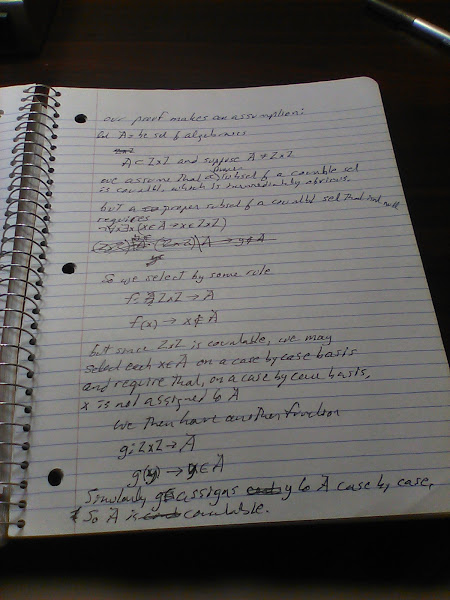 our proof makes an assumption:
Let A be set of algebraics
A ⊂ Z×Z and suppose A ≠ Z×Z
proper
we assume that any subset of a countable set
is countable, which is immediately obvious.
but a proper subset of a countable set that is not null
requires
∃x(x∈A → x∈Z×Z)
So we select by some rule
f: Z×Z → A
f(x) → x∉A
but since Z×Z is countable, we may
select each x∈A on a case by case basis
and require that, on a case by case basis,
x is not assigned to A
we then have another function
g: Z×Z → A
g(y) → y∈A
Similarly g assigns y to A case by case,
So A is countable.